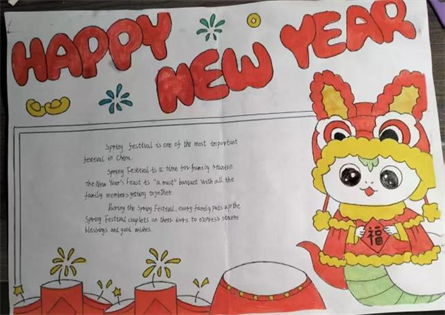 HAPPY
NEW YEAR
Spring festival is one of the most important
festival in China.
Spring Festival is a time for family reunion.
The New Year's Feast is "a must" banquet with all the
family members getting together.
During the Spring Festival, every family puts up the
Spring Festival couplets on their doors to express
blessings and good wishes.
福